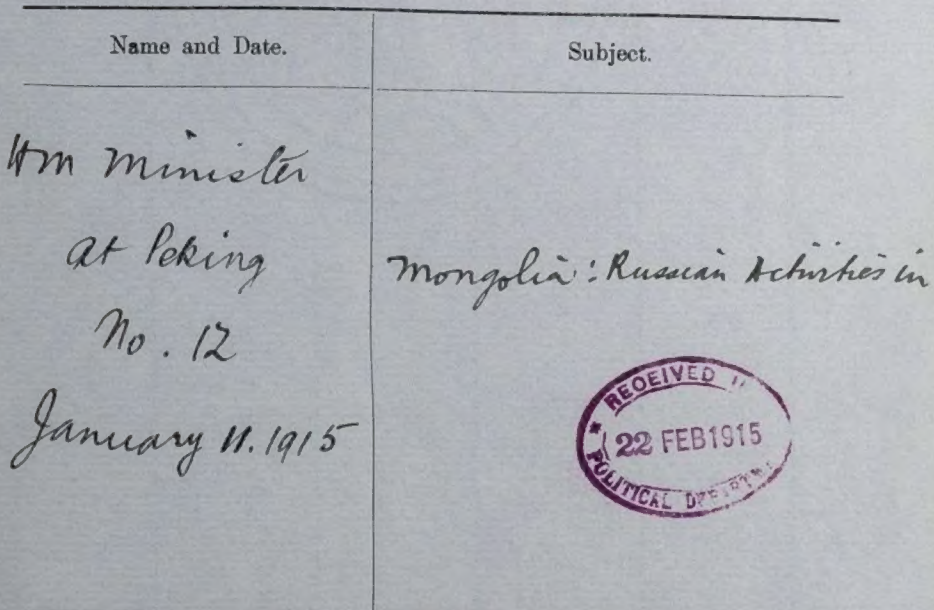 Name and Date.
Subject.
HM Minister
at Peking
No. 12
January 11. 1915
Mongolia: Russian Activities in
* RECEIVED
22 FEB 1915
POLITICAL